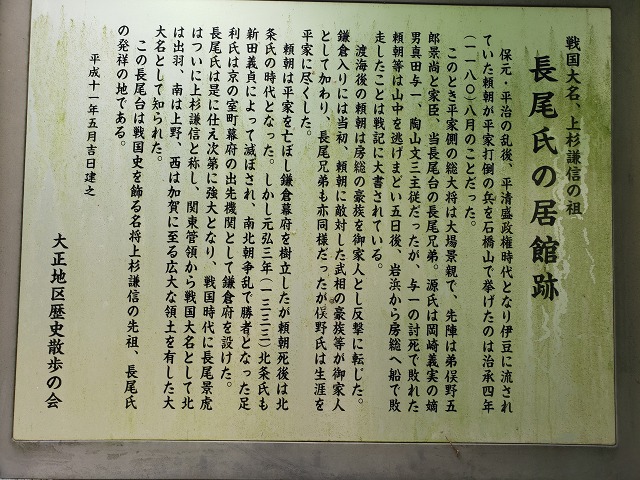 戦国大名、上杉謙信の祖
長尾氏の居館跡
保元・平治の乱後、平清盛政権時代となり伊豆に流され
ていた頼朝が平家打倒の兵を石橋山で挙げたのは治承四年
(一一八〇)八月のことだった。
このとき平家側の総大将は大場景親で、先陣は弟俣野五
郎景尚と家臣、当長尾台の長尾兄弟。源氏は岡崎義実の嫡
男真田与一、陶山文三主従だったが、与一の討死で敗れた
頼朝等は山中を逃げまどい五日後、岩浜から房総へ船で敗
走したことは戦記に大書されている。
渡海後の頼朝は房総の豪族を御家人とし反撃に転じた。
鎌倉入りには当初、頼朝に敵対した武相の豪族等が御家人
として加わり、長尾兄弟も亦同様だったが俣野氏は生涯を
平家に尽くした。
頼朝は平家を亡ぼし鎌倉幕府を樹立したが頼朝死後は北
条氏の時代となった。しかし元弘三年(一三三三)北条氏も
新田義貞によって滅ぼされ、南北朝争乱で勝者となった足
利氏は京の室町幕府の出先機関として鎌倉府を設けた。
長尾氏は是に仕え次第に強大となり、戦国時代に長尾景虎
はついに上杉謙信と称し、関東管領から戦国大名として北
は出羽、南は上野、西は加賀に至る広大な領土を有した大
大名として知られた。
この長尾台は戦国史を飾る名将上杉謙信の先祖、長尾氏
の発祥の地である。
平成十一年五月吉日建之
大正地区歴史散歩の会